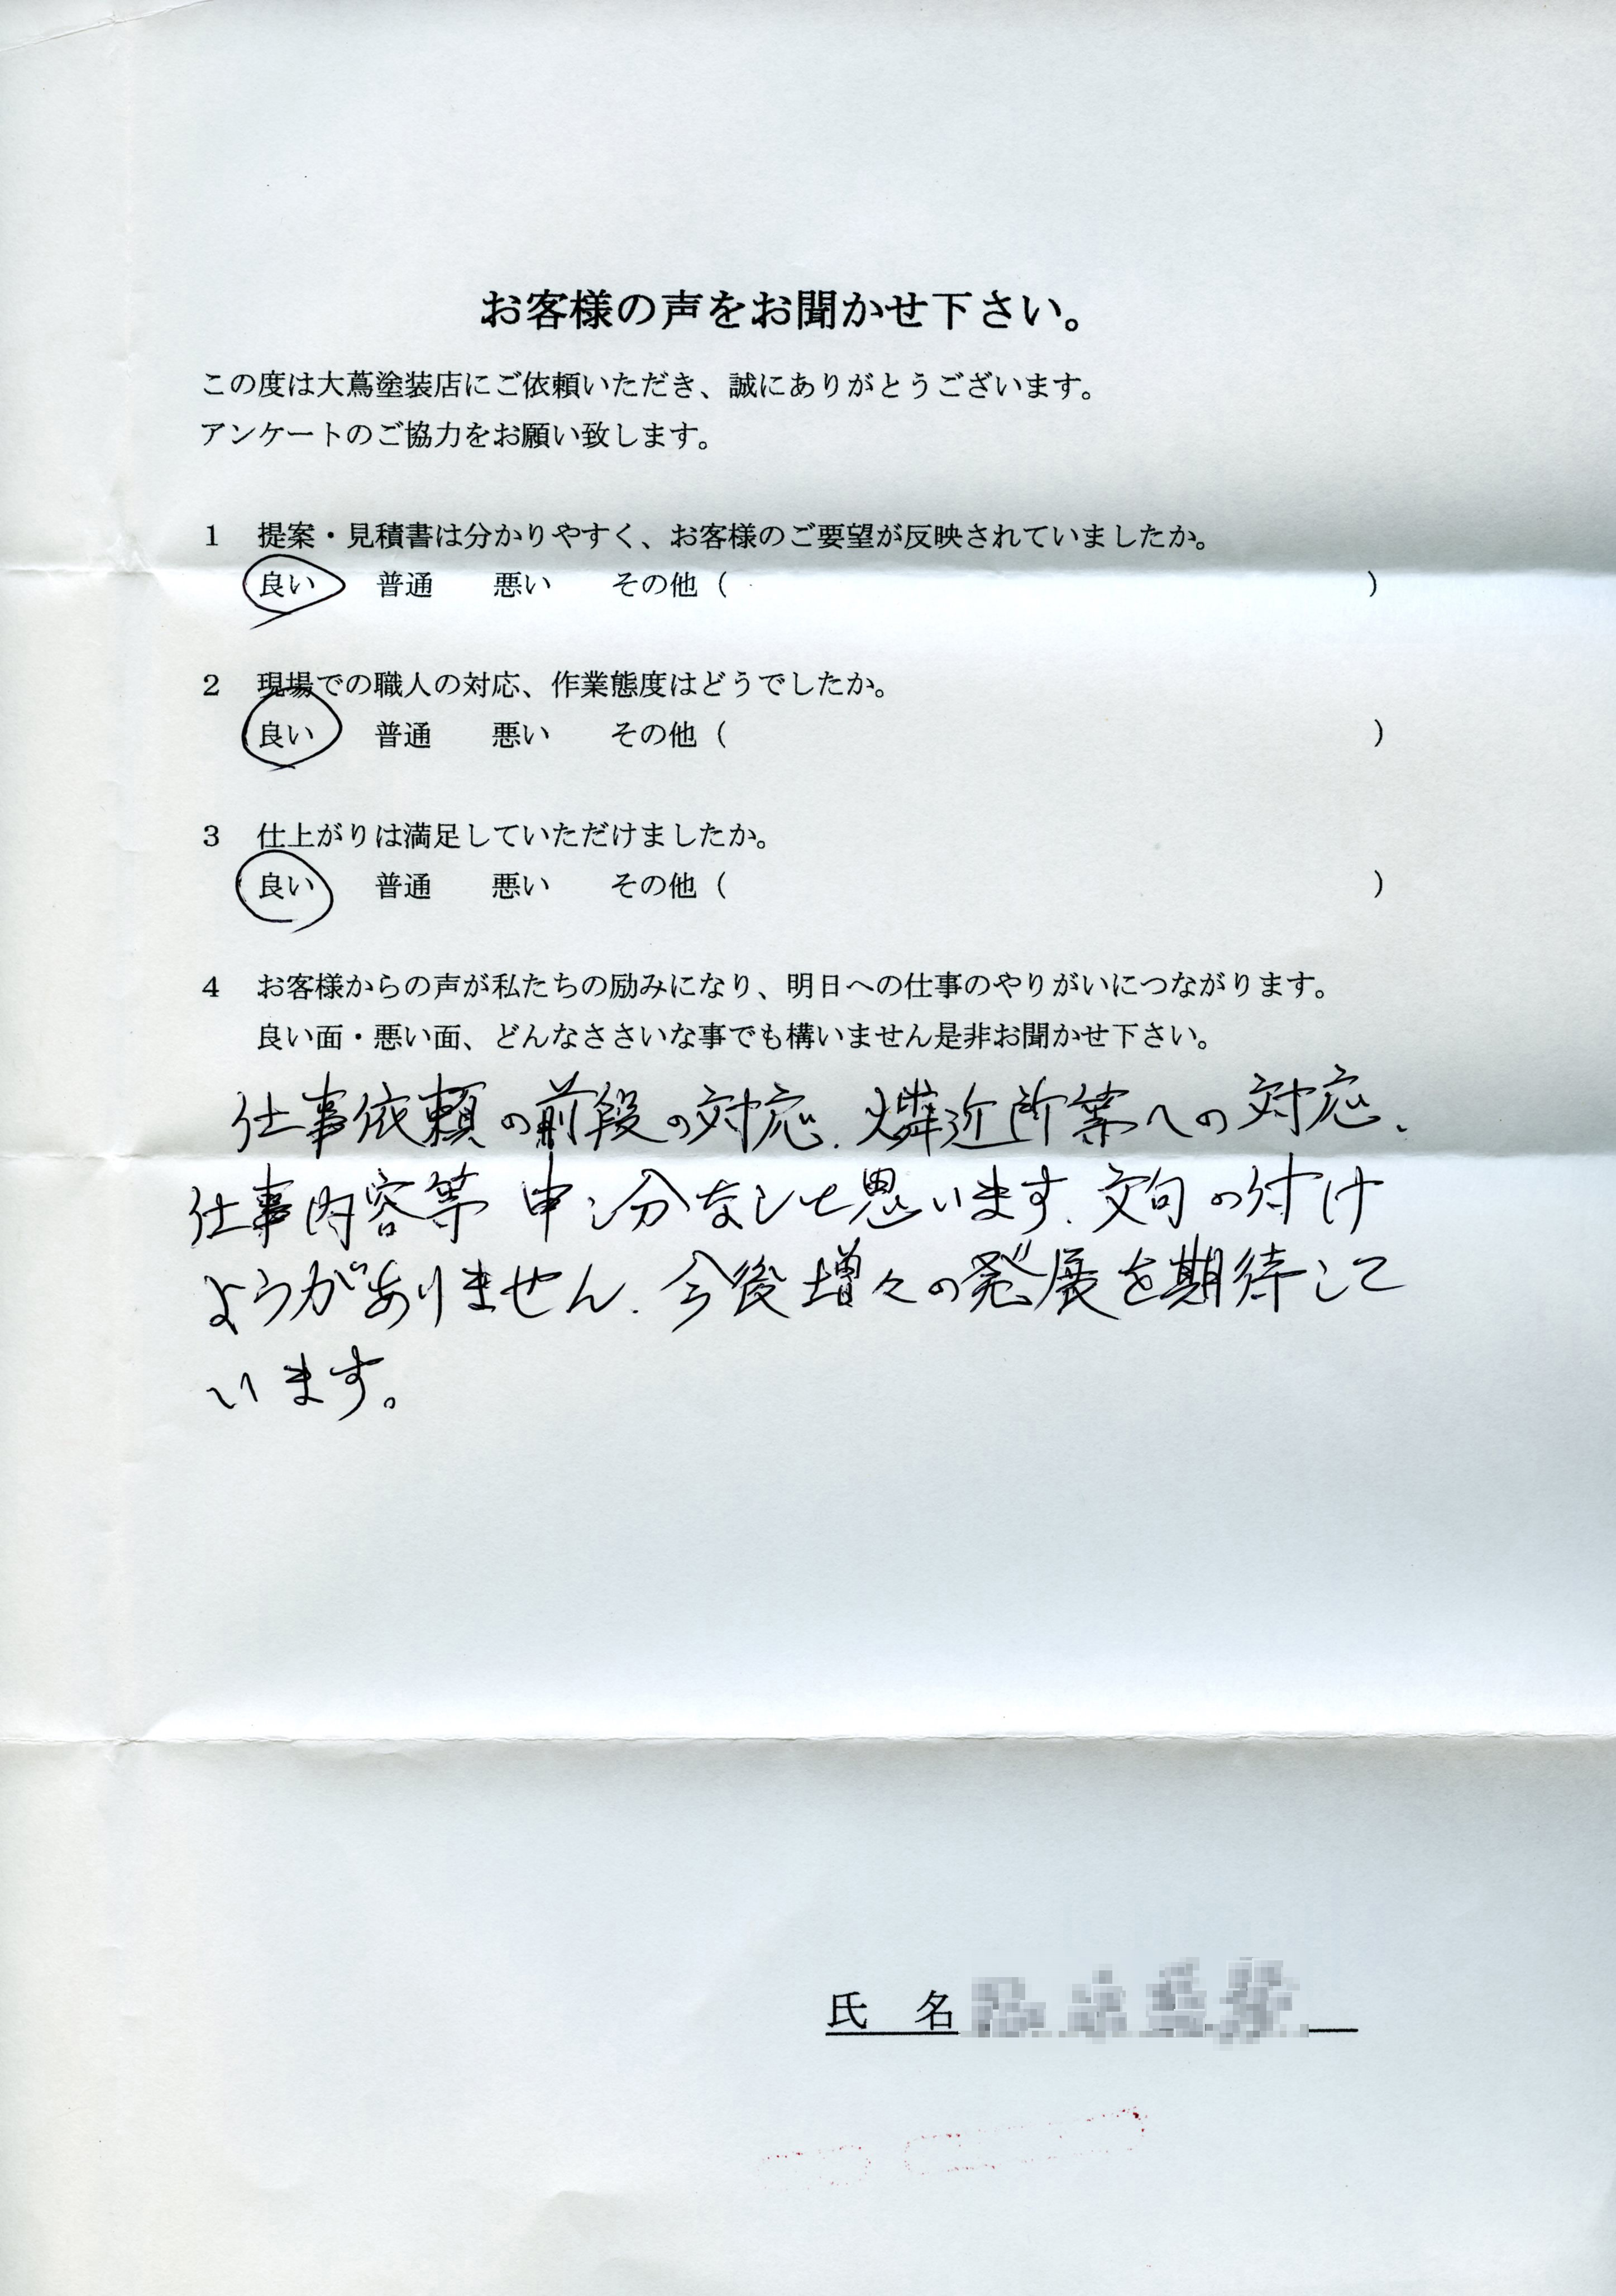 お客様の声をお聞かせ下さい。
この度は大蔦塗装店にご依頼いただき、誠にありがとうございます。
アンケートのご協力をお願い致します。
1 提案・見積書は分かりやすく、お客様のご要望が反映されていましたか。
良い 普通 悪い その他（ ）
2 現場での職人の対応、作業態度はどうでしたか。
良い 普通 悪い その他（ ）
3 仕上がりは満足していただけましたか。
良い 普通 悪い その他（ ）
4 お客様からの声が私たちの励みになり、明日への仕事のやりがいにつながります。
良い面・悪い面、どんなささいな事でも構いません是非お聞かせ下さい。
仕事依頼の前段の対応、隣近所等への対応、
仕事内容等 申し分なしと思います、文句の付け
ようがありません、今後増々の発展を期待して
います。
氏 名